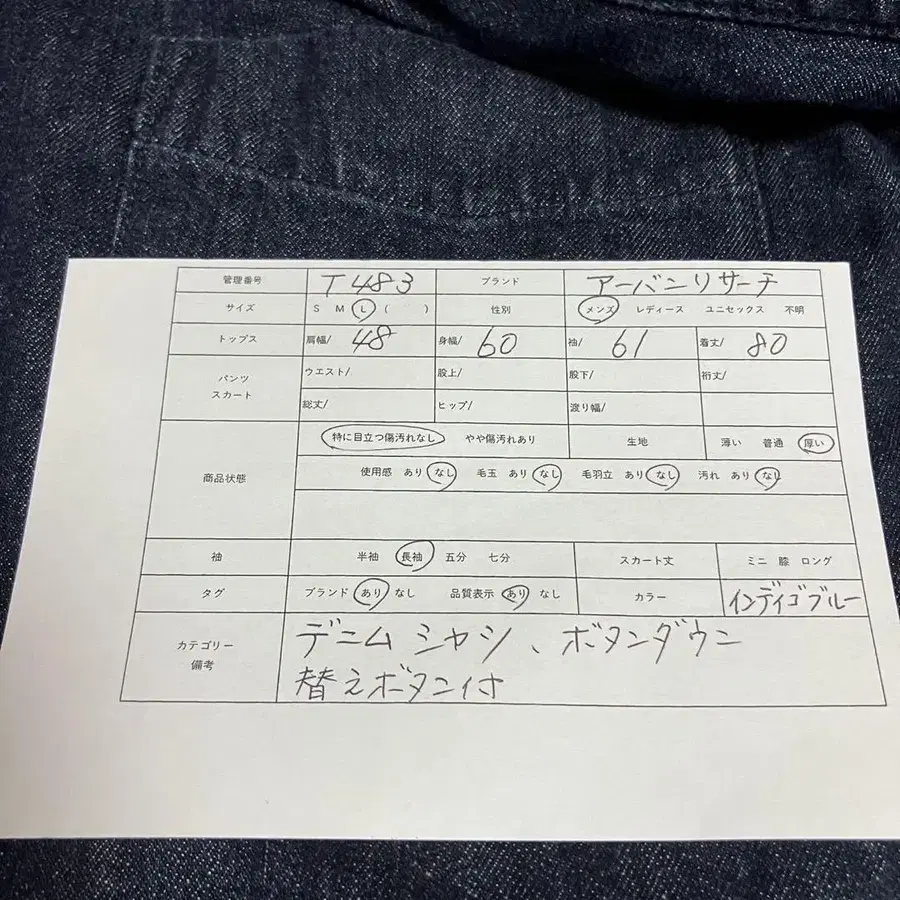 管理番号 T483 ブランド アーバンリサーチ
サイズ S M L ( ) 性別 メンズ レディース ユニセックス 不明
トップス 肩幅/ 48 身幅/ 60 袖/ 61 着丈/ 80
パンツ スカート ウエスト/ 股上/ 股下/ 裄丈/
総丈/ ヒップ/ 渡り幅/
商品状態 特に目立つ傷汚れなし やや傷汚れあり 生地 薄い 普通 厚い
使用感 あり なし 毛玉 あり なし 毛羽立 あり なし 汚れ あり なし
袖 半袖 長袖 五分 七分 スカート丈 ミニ 膝 ロング
タグ ブランド あり なし 品質表示 あり なし カラー インディゴブルー
カテゴリー 備考 デニムシャシ、ボタンダウン
替えボタン付